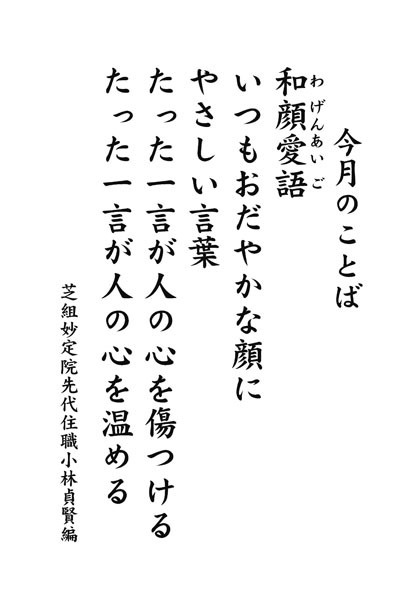 今月のことば
和顔愛語
わげんあいご
いつもおだやかな顔に
やさしい言葉
たった一言が人の心を傷つける
たった一言が人の心を温める
芝組妙定院先代住職小林貞賢編